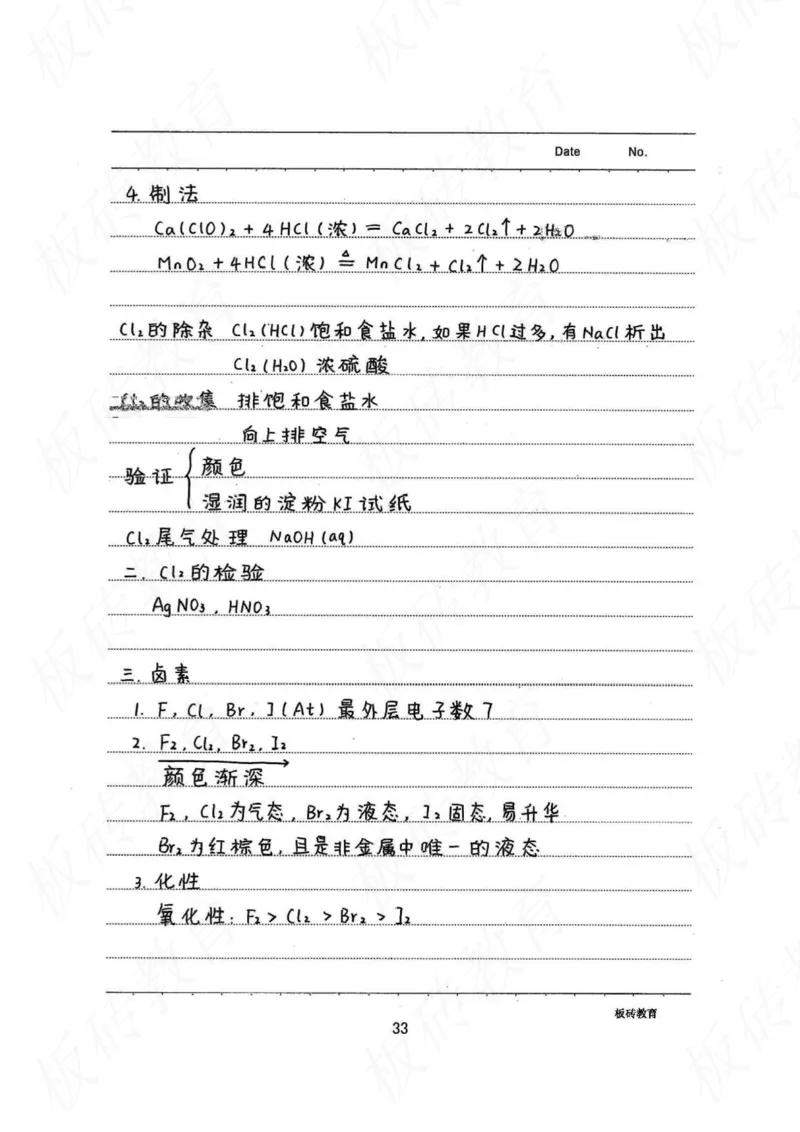 Date No.
4. 制法
Ca(ClO)₂ + 4HCl(浓) = CaCl₂ + 2Cl₂↑ + 2H₂O
MnO₂ + 4HCl(浓) ≜ MnCl₂ + Cl₂↑ + 2H₂O
Cl₂的除杂 Cl₂(HCl) 饱和食盐水, 如果HCl过多, 有NaCl析出
Cl₂(H₂O) 浓硫酸
Cl₂的收集 排饱和食盐水
向上排空气
验证 { 颜色
湿润的淀粉KI试纸
Cl₂尾气处理 NaOH(aq)
二. Cl₂的检验
AgNO₃, HNO₃
三. 卤素
1. F, Cl, Br, I(At) 最外层电子数7
2. F₂, Cl₂, Br₂, I₂
颜色渐深
F₂, Cl₂为气态, Br₂为液态, I₂固态, 易升华
Br₂为红棕色, 且是非金属中唯一的液态
3. 化性
氧化性: F₂ > Cl₂ > Br₂ > I₂
板砖教育
33